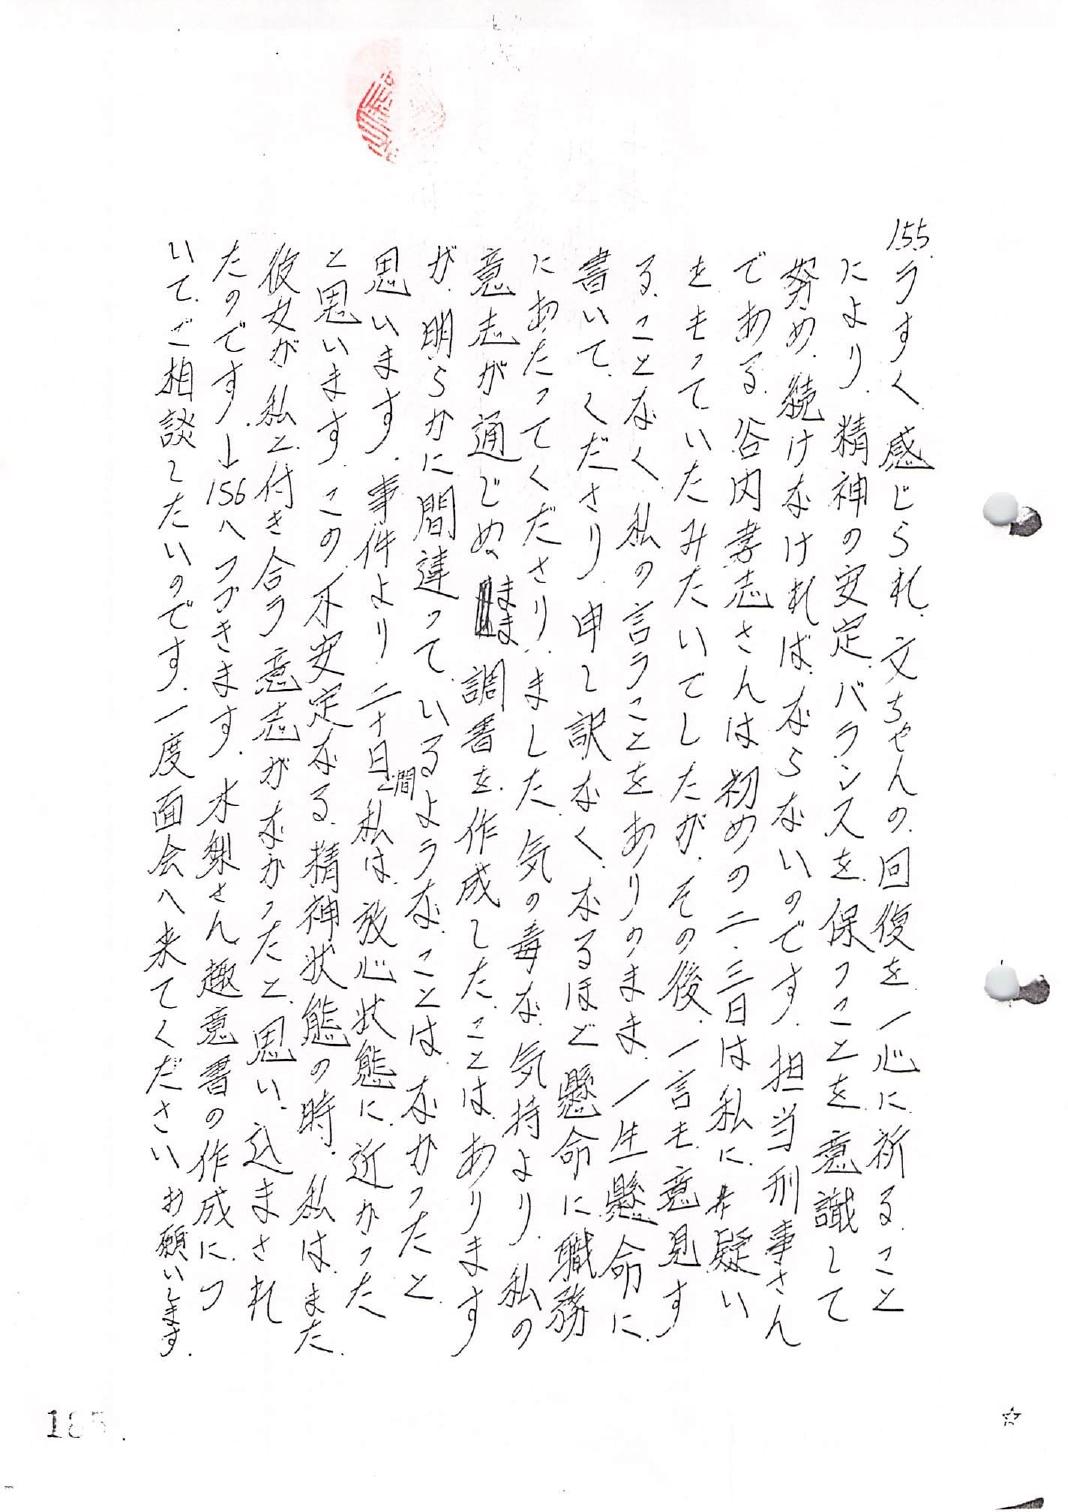 155.
うすく感じられ、文ちゃんの、回復を、一心に祈ること
により、精神の安定、バランスを、保つことを、意識して
努め、続けなければ、ならないのです。担当刑事さん
である、谷内孝志さんは、初めの二、三日は私に、疑い
をもっていたみたいでしたが、その後、一言も意見す
る、ことなく、私の言うことをありのまま、一生懸命に、
書いて、くださり、申し訳なく、なるほど懸命に職務
にあたってくださり、ました、気の毒な、気持より、私の
意志が通じぬ、まま、調書を、作成した、ことは、あります
が、明らかに間違って、いるような、ことは、なかったと
思います。事件より、二十日間、私は、放心状態に近かった
と思います。この、不安定なる、精神状態の時、私は、また、
彼女が、私と、付き合う意志がなかったと、思い、込まされ
たのです。→156へつづきます。水梨さん趣意書の作成に、つ
いて、ご相談したいのです。一度面会へ来てください、お願いします。
185.
☆